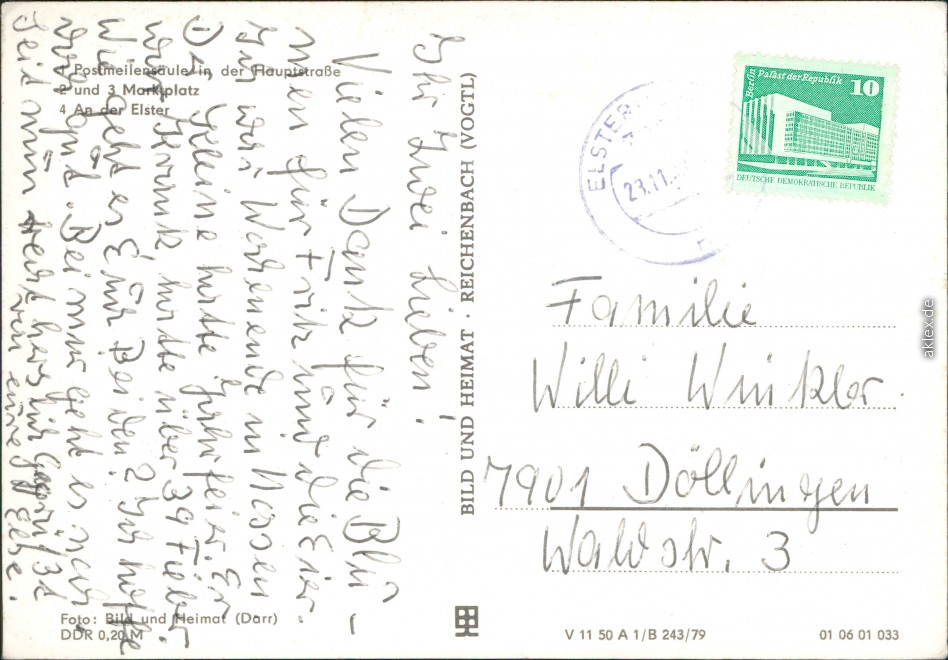 Postmeilensäule in der Hauptstraße
2 und 3 Marktplatz
4 An der Elster
Ihr zwei Lieben!
Vielen Dank für die Blu-
men für Fritz und die Eier.
Wochenende in Nossen
hatte Er
war krank, hatte über 39 Fieber.
Wie geht es Euch Beiden? Ich hoffe
gut. Bei mir geht es
Seid nun recht herzlich gegrüßt
von eure
Foto: Bild und Heimat (Darr)
DDR 0,20 M
BILD UND HEIMAT · REICHENBACH (VOGTL)
Berlin Palast der Republik 10
DEUTSCHE DEMOKRATISCHE REPUBLIK
ELSTER
23.11.
Familie
Willi Winkler
7901 Döllingen
Waldstr. 3
V 11 50 A 1/B 243/79
01 06 01 033
aklex.de